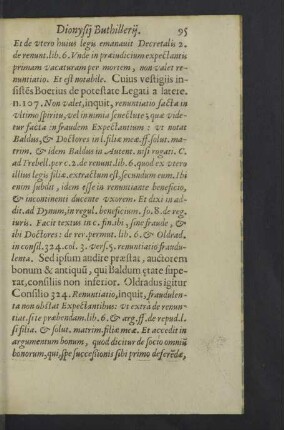 Dionysij Buthillerij. 95
Et de vtero huius legis emanauit Decretalis 2.
de renunt. lib. 6. Vnde in præiudicium expectantis
primam vacaturam per mortem, non valet re-
nuntiatio. Et est notabile. Cuius vestigiis in-
sistẽs Boetius de potestate Legati à latere.
n. 107. Non valet, inquit, renuntiatio facta in
vltimo spiritu, vel in nimia senectute; quæ vide-
tur facta in fraudem Expectantium: vt notat
Baldus, & Doctores in l. filiæ meæ. ff. solut. ma-
trim. & idem Baldus in Autent. nisi rogati. C.
ad Trebell. per c. 2. de renunt. lib. 6. quod ex vtero
illius legis filiæ, extractum est, secundum eum. Ibi
enim subdit, idem esse in renuntiante beneficio,
& incontinenti ducente vxorem. Et dixi in ad-
dit. ad Dynum, in regul. beneficium. fo. 8. de reg.
iuris. Facit textus in c. fin. ibi, sine fraude, &
ibi Doctores: de rer. permut. lib. 6. & Oldrad,
in consil. 324. col. 3. vers. 5. renuntiatio fraudu-
lenta. Sed ipsum audire præstat, auctorem
bonum & antiquũ, qui Baldum ętate supe-
rat, consiliis non inferior. Oldradus igitur
Consilio 324. Renuntiatio, inquit, fraudulen-
ta non obstat Expectantibus: vt extrà de renun-
tiat. si te præbendam. lib. 6. & arg. ff. de repud. l.
si filia. & solut. matrim. filiæ meæ. Et accedit in
argumentum bonum, quod dicitur de socio omniũ
bonorum, qui, spe successionis sibi primo deferẽdæ,